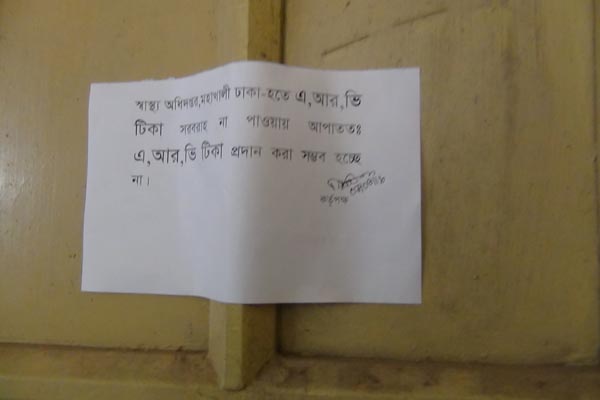 স্বাস্থ্য অধিদপ্তর,মহাখালী ঢাকা-হতে এ,আর,ভি
টিকা সরবরাহ না পাওয়ায় আপাততঃ
এ,আর,ভি টিকা প্রদান করা সম্ভব হচ্ছে
না।
কর্তৃপক্ষ